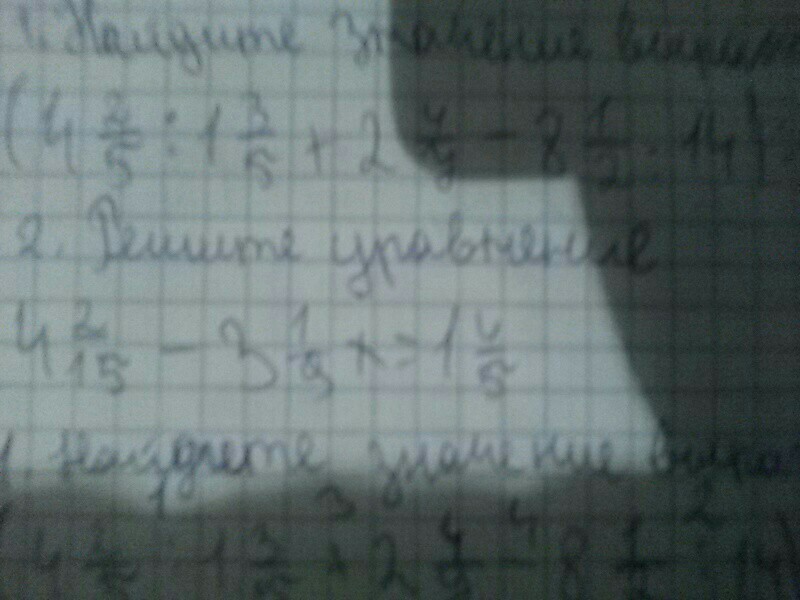 1. Найдите значение выраж
(4 2/5 : 1 3/5 + 2 4/9 - 8 1/2 : 14)
2. Решите уравнение
4 2/15 - 3 1/9 x = 1 4/5
1. Найдите значение выра
1 3 4 2
4 2/5 : 1 3/5 + 2 4/9 - 8 1/2 : 14)